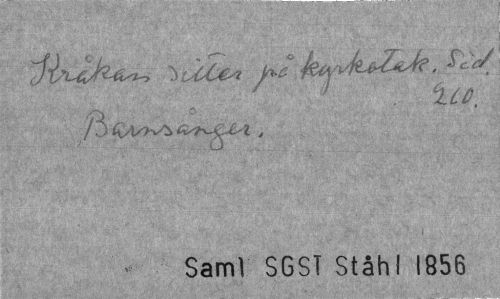 Kråkan sitter på kyrkotak. Sid.
210.
Barnsånger.
Saml SGST Ståhl 1856